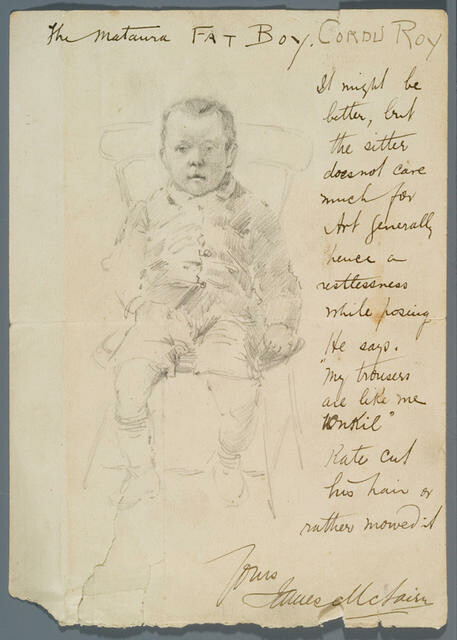 The Mataura FAT BOY. CORDU ROY
It might be
better, but
the sitter
does not care
much for
Art generally
hence a
restlessness
while posing
He says.
"My trousers
are like me
Unkil"
Kate cut
his hair or
rather mowed it
Yours
James McNairn